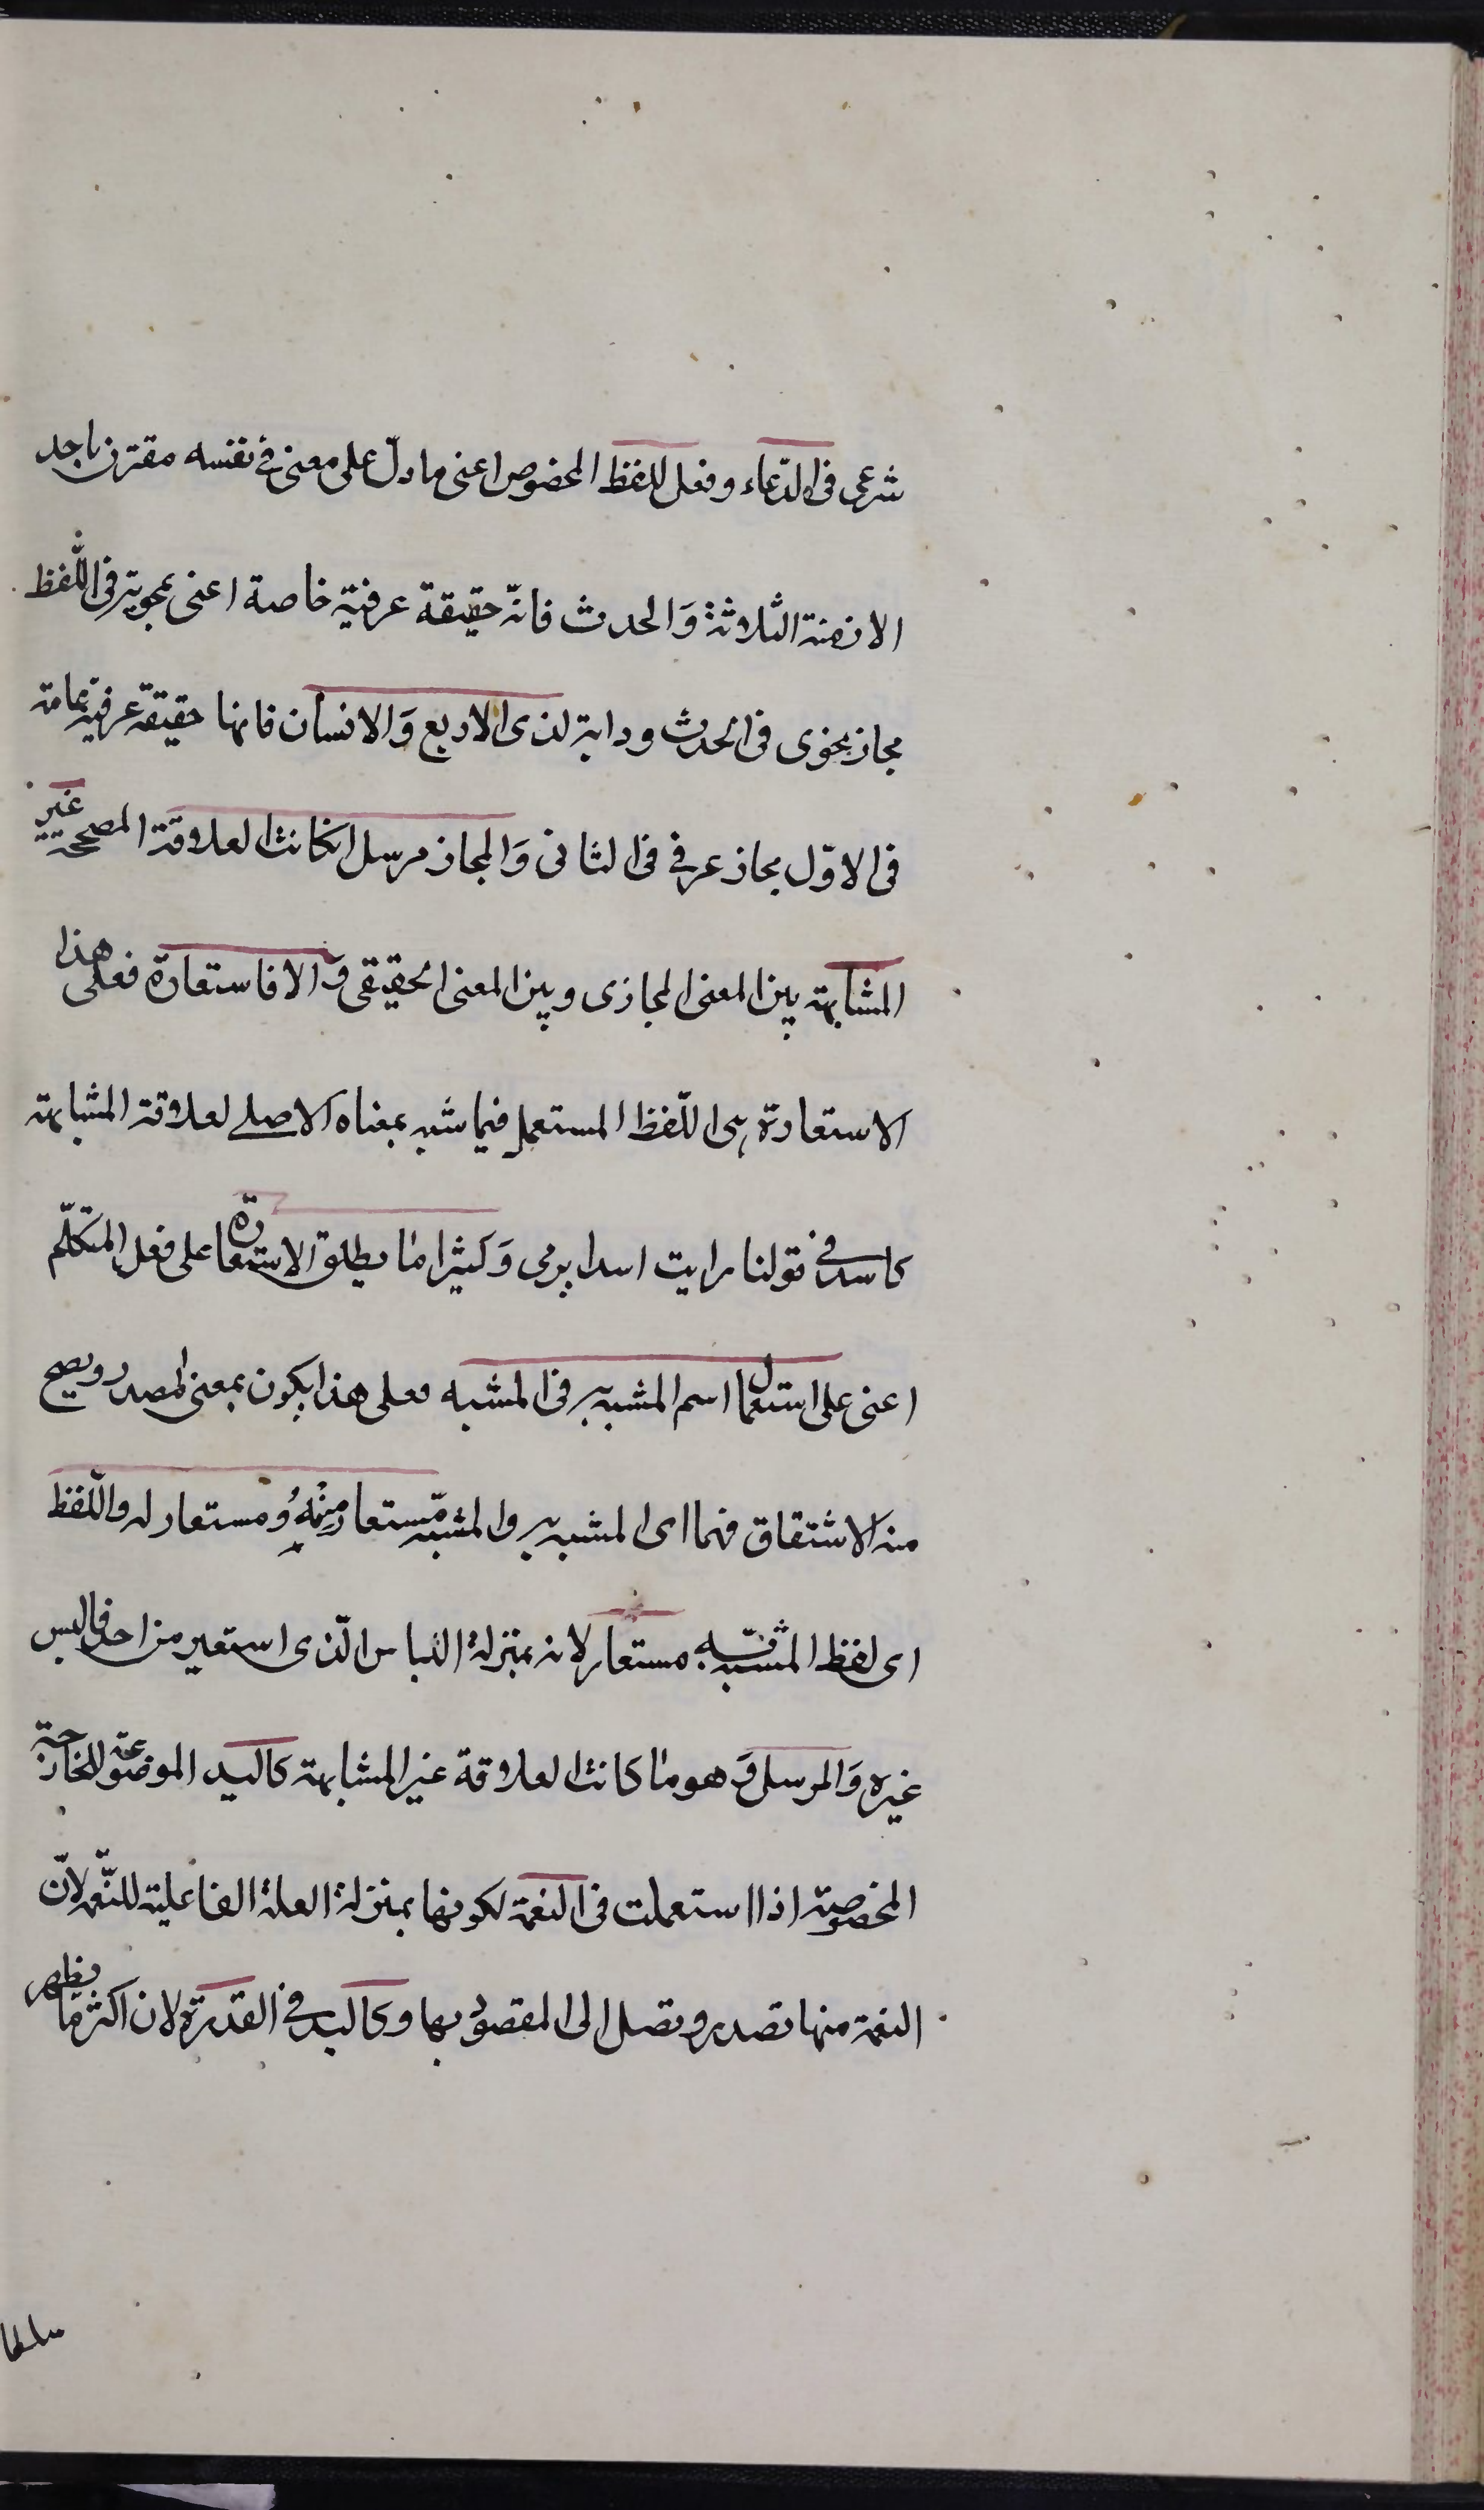 شرعى فى الدّعاء وفعل للفظ المخصوص اعنى ما دلّ على معنى فى نفسه مقترن باحد
الازمنة الثلاثة وَالحدث فانّه حقيقة عرفية خاصة اعنى نحوية فى اللّفظ
مجاز نحوى فى الحدث ودابة لذى الاربع وَالانسان فانها حقيقة عرفية عامة
فى الاوّل مجاز عرفى فى الثانى وَالمجاز مرسل انكانت العلاقة المصححة غير
المشابهة بين المعنى المجازى وبين المعنى الحقيقى وَالا فاستعارة فعلى هذا
الاستعارة هى اللّفظ المستعمل فيما شبه بمعناه الاصلى لعلاقة المشابهة
كاسد فى قولنا رايت اسدا يرمى وَكثيرا ما يطلق الاستعارة على فعل المتكلّم
اعنى على استعمال اسم المشبه به فى المشبه فعلى هذا يكون بمعنى المصدر ويصح
منه الاشتقاق فهما اى المشبه به والمشبّه مستعار مِنْهُ ومستعار له واللّفظ
اى لفظ المشبّه به مستعار لانه بمنزلة اللباس الّذى استعير من احد فالبس
غيره وَالمرسل وَهو ما كانت العلاقة غير المشابهة كاليد الموضوعة للجارحة
المخصوصة اذا استعملت فى النعمة لكونها بمنزلة العلة الفاعلية للنّعمة لانّ
النعمة منها تصدر وتصل الى المقصود بها وكاليد فى القدرة لان اكثر ما يظهر
سلطا